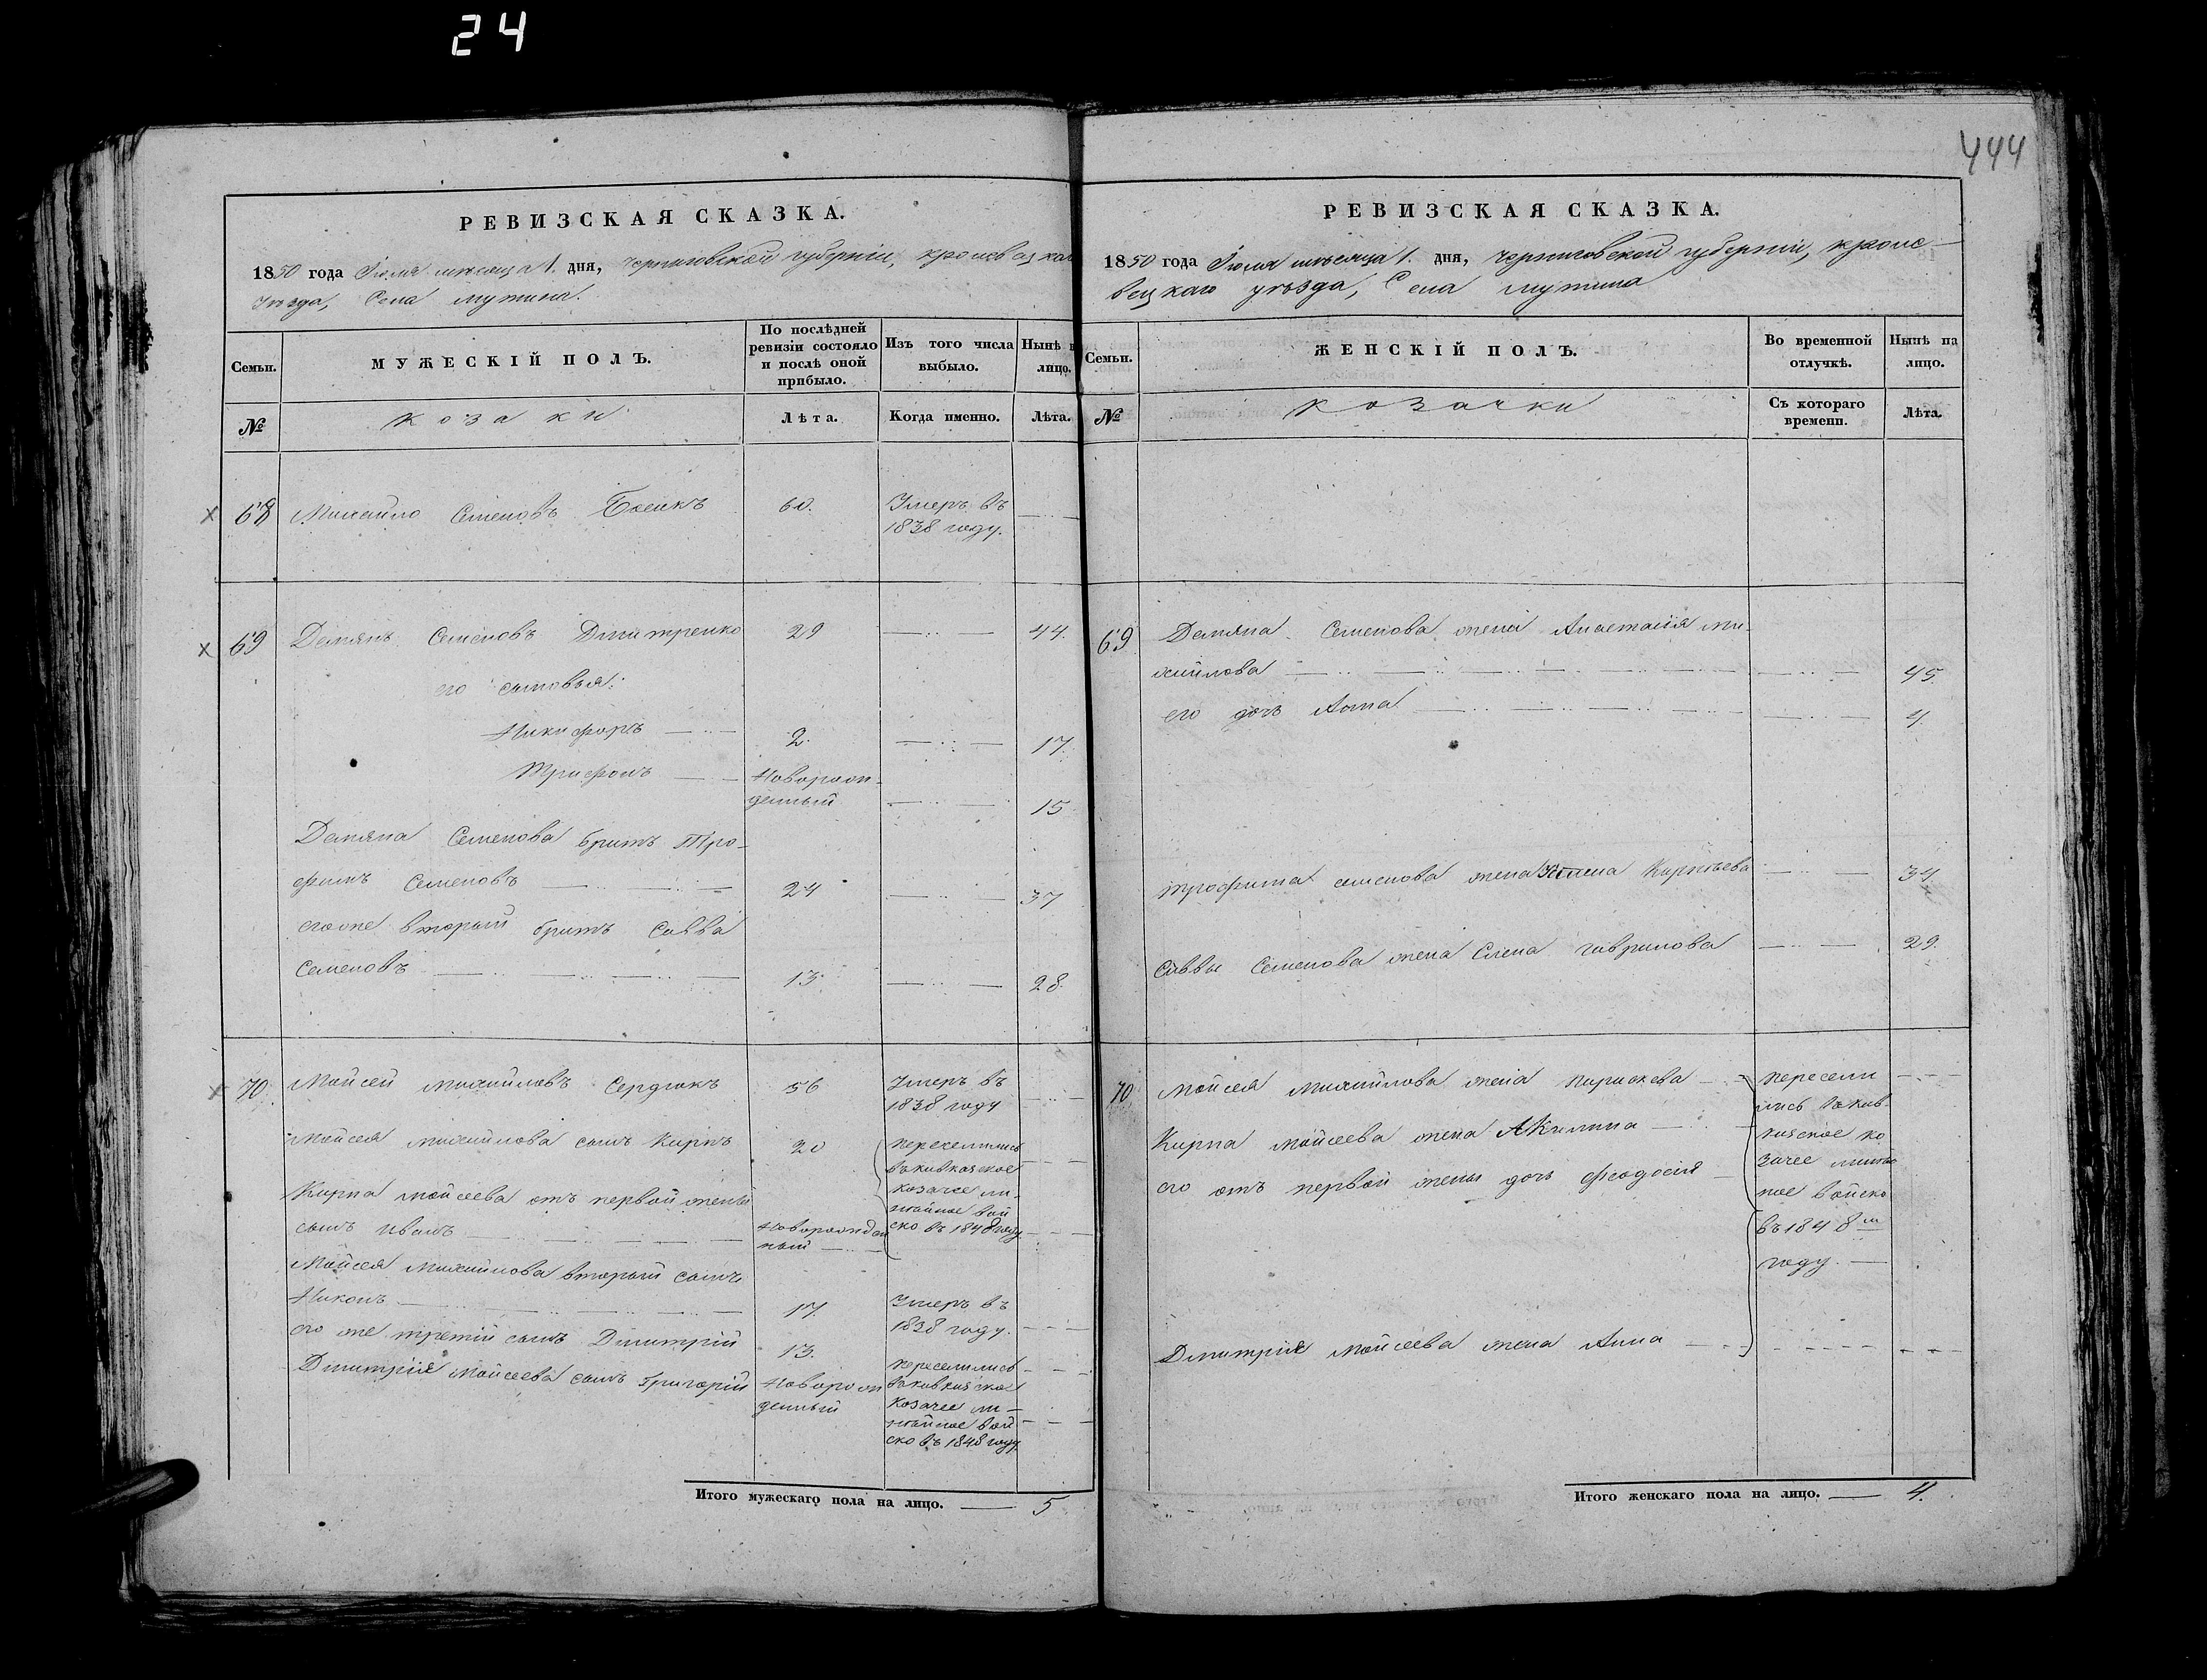 24
444
РЕВИЗСКАЯ СКАЗКА.
1850 года Іюля мѣсяца 1. дня, Черниговской губерніи, кролевецкаго
Уѣзда, Села Мутина.
Семьи.
МУЖЕСКІЙ ПОЛЪ.
По послѣдней ревизіи состояло и послѣ оной прибыло.
Изъ того числа выбыло.
Нынѣ на лицо.
№
козаки
Лѣта.
Когда именно.
Лѣта.
68 Михайло Семеновъ 60. Умеръ въ
1838 году.
69 Демянъ Семеновъ Дмитренко 29 44.
его сыновья:
Никифоръ 2. 17.
Трифонъ Новорож-
денный 15
Демяна Семенова братъ Тро-
фимъ Семеновъ 24 37
егоже вторый братъ Савва
Семеновъ 13. 28.
70. Мойсей Михайловъ Сердюкъ 56 Умеръ въ
1838 году
Мойсея Михайлова сынъ Кирпъ 20 переселились
въ кавказское
Кирпа Мойсеева отъ первой жены козачее ли-
нейное вой
сынъ Иванъ Новорожден ско въ 1848 году
ный
Мойсея Михайлова вторый сынъ
Никонъ 17. Умеръ въ
1838 году.
его же третій сынъ Дмитрій 13.
переселились
Дмитрія Мойсеева сынъ Григорій Новорож въ кавказское
денный козачее ли-
нейное вой
ско въ 1848 году.
Итого мужескаго пола на лицо. 5
РЕВИЗСКАЯ СКАЗКА.
1850 года Іюля мѣсяца 1. дня, Черниговской губерніи, кроле-
вецкаго уѣзда, Села Мутина
Семьи.
ЖЕНСКІЙ ПОЛЪ.
Во временной отлучкѣ.
Нынѣ на лицо.
№
козачки
Съ котораго времени.
Лѣта.
69 Демяна Семенова жена Анастасія Ми-
хайлова 45.
его дочь Анна 4.
Трофима семенова жена 34
Саввы Семенова жена Елена гаврилова 29.
70 Мойсея Михайлова жена Параскева пересели
лись въ кав-
Кирпа Мойсеева жена Акилина казское ко
зачее линей
его отъ первой жены дочь Феодосія ное войско
въ 1848 м
году.
Дмитрія Мойсеева жена Анна
Итого женскаго пола на лицо. 4.